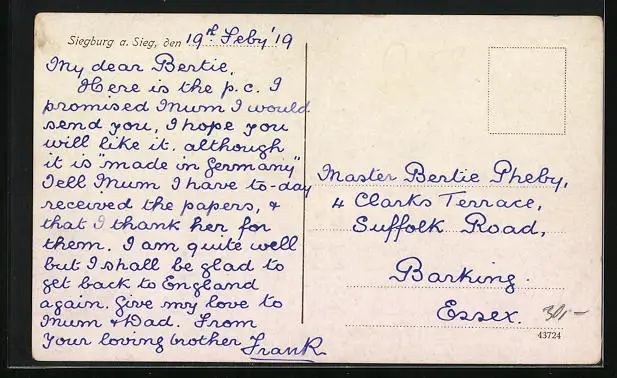 Siegburg a. Sieg, den 19th Feby '19
My dear Bertie,
Here is the p.c. I
promised Mum I would
send you, I hope you
will like it. although
it is "made in Germany"
Tell Mum I have to-day
received the papers, &
that I thank her for
them. I am quite well
but I shall be glad to
get back to England
again. Give my love to
Mum & Dad. From
Your loving brother Frank
Master Bertie Pheby,
4 Clarks Terrace,
Suffolk Road,
Barking.
Essex.
43724